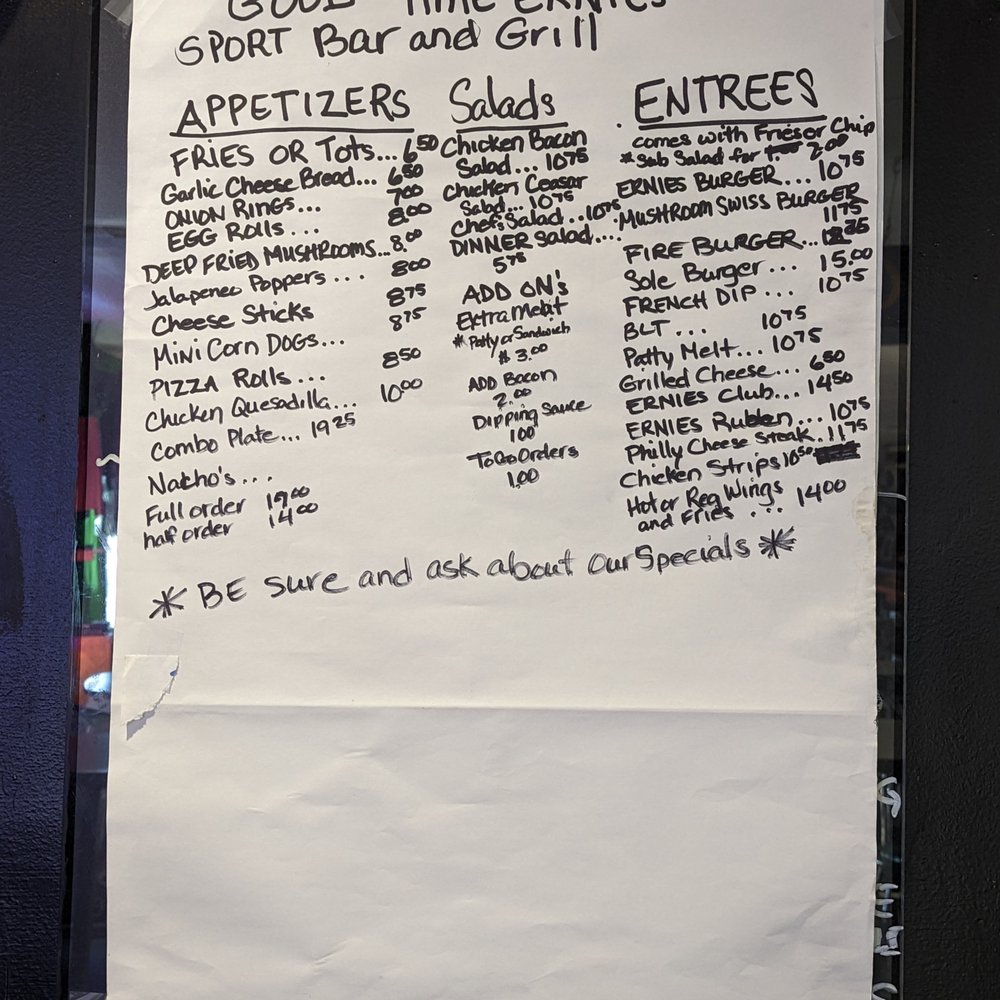 GOOD TIME ERNIES
SPORT Bar and Grill
APPETIZERS
FRIES OR Tots... 6.50
Garlic Cheese Bread... 6.50
ONION RINGS... 7.00
EGG Rolls... 8.00
DEEP FRIED MUSHROOMS... 8.00
Jalapeneo Poppers... 8.00
Cheese Sticks 8.75
Mini Corn DOGS... 8.75
PIZZA Rolls... 8.50
Chicken Quesadilla... 10.00
Combo Plate... 19.25
Natcho's...
Full order 19.00
haf order 14.00
Salads
Chicken Bacon
Salad... 10.75
Chicken Ceasar
Salad... 10.75
Chefs Salad.. 10.75
DINNER Salad....
5.75
ADD ON's
Extra Meat
* Patty or Sandwich
$ 3.00
ADD Bacon
2.00
Dipping Sauce
1.00
To Go Orders
1.00
ENTREES
comes with Fries or Chip
* Sub Salad for 2.00
ERNIES BURGER... 10.75
MUSHROOM SWISS BURGER
11.75
FIRE BURGER...
Sole Burger... 15.00
FRENCH DIP... 10.75
BLT... 10.75
Patty Melt... 10.75
Grilled Cheese... 6.50
ERNIES Club... 14.50
ERNIES Ruben... 10.75
Philly Cheese Steak. 11.75
Chicken Strips 10.50
Hot or Reg Wings
and Fries... 14.00
* BE sure and ask about our Specials *